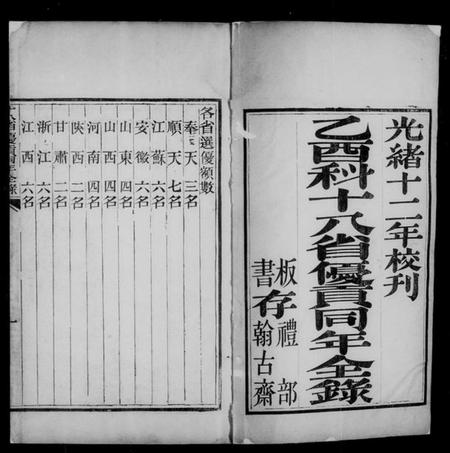 光緒十二年校刊
乙酉科十八省優貢同年全錄
板存禮部
書存翰古齋
各省選優額數
奉天三名
順天七名
江蘇六名
安徽六名
山東四名
山西四名
河南四名
陝西二名
甘肅二名
浙江六名
江西六名